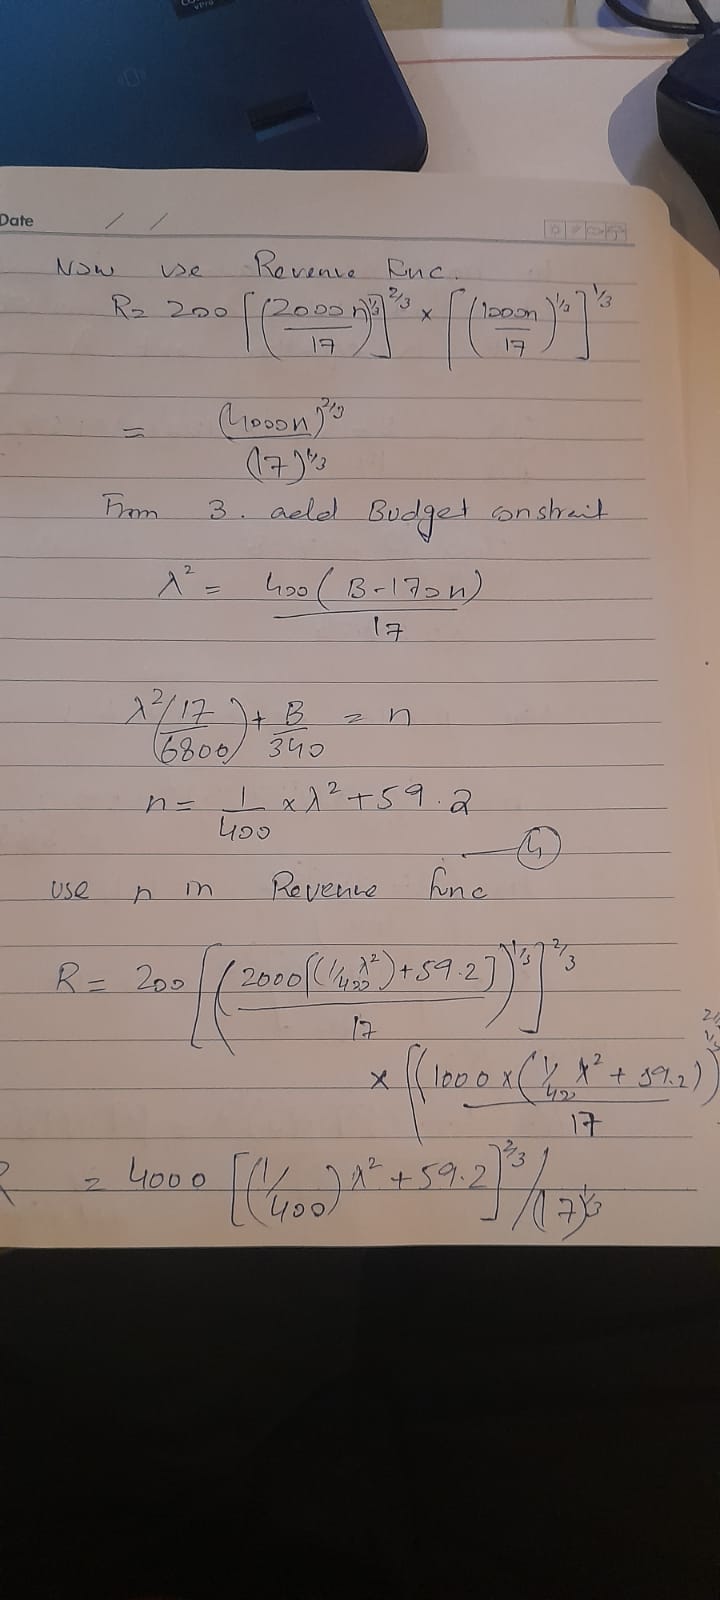 vPro
Date / /
Now use Revenue Func.
R= 200 [((2000n)/17)^1/3]^2/3 × [((1000n)/17)^1/3]^1/3
= (4000n)^2/3 / (17)^1/3
From 3. add Budget constrait
λ² = 400(B-170n) / 17
λ²(17/6800) + B/340 = n
n = 1/400 × λ² + 59.2
4
use n in Revenue func
R = 200 [((2000[(1/400 λ²) + 59.2])/17)^1/3]^2/3
× [((1000 × (1/400 λ² + 59.2))/17)
= 4000 [(1/400) λ² + 59.2]^2/3 / (17)^1/3